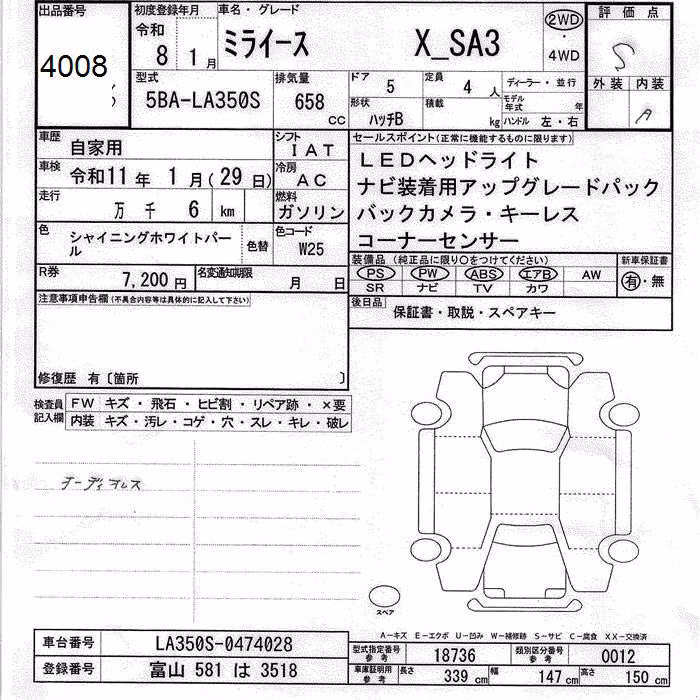 出品番号 初度登録年月 車名・グレード 評価点
4008 令和 8 1月 ミライース X_SA3 2WD・4WD S
型式 排気量 ドア 定員 ディーラー・並行 外装 内装
5BA-LA350S 658 cc 5 4人 モデル年式 年 A
形状 積載 ハンドル 左・右
ハッチB kg
車歴 自家用 シフト IAT セールスポイント(正常に機能するものに限ります)
車検 令和11年 1月(29日) 冷房 AC LEDヘッドライト
ナビ装着用アップグレードパック
走行 万 千 6 km 燃料 ガソリン バックカメラ・キーレス
色 シャイニングホワイトパール 色替 色コード W25 コーナーセンサー
装備品(純正品に限り○をつけてください) 新車保証書
R券 7,200円 名変通知期限 月 日 PS PW ABS エアB AW 有・無
SR ナビ TV カワ
注意事項申告欄(不具合内容等は具体的に記入して下さい) 後日品 保証書・取説・スペアキー
修復歴 有〔箇所 〕
検査員記入欄 FW キズ・飛石・ヒビ割・リペア跡・×要
内装 キズ・汚レ・コゲ・穴・スレ・キレ・破レ
スペア
A-キズ E-エクボ U-凹み W-補修跡 S-サビ C-腐食 XX-交換済
車台番号 LA350S-0474028 型式指定番号 参考 18736 類別区分番号 参考 0012
登録番号 富山 581 は 3518 車庫証明用 参考 長さ 339 cm 幅 147 cm 高さ 150 cm